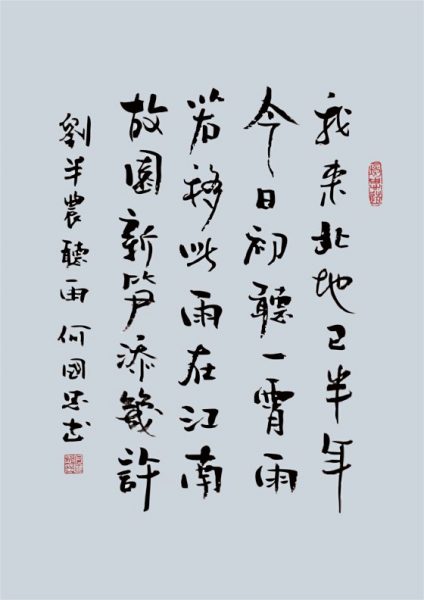 我来北地已半年
今日初聽一宵雨
若移此雨在江南
故園新笋添幾許
劉半農聽雨 何國忠书